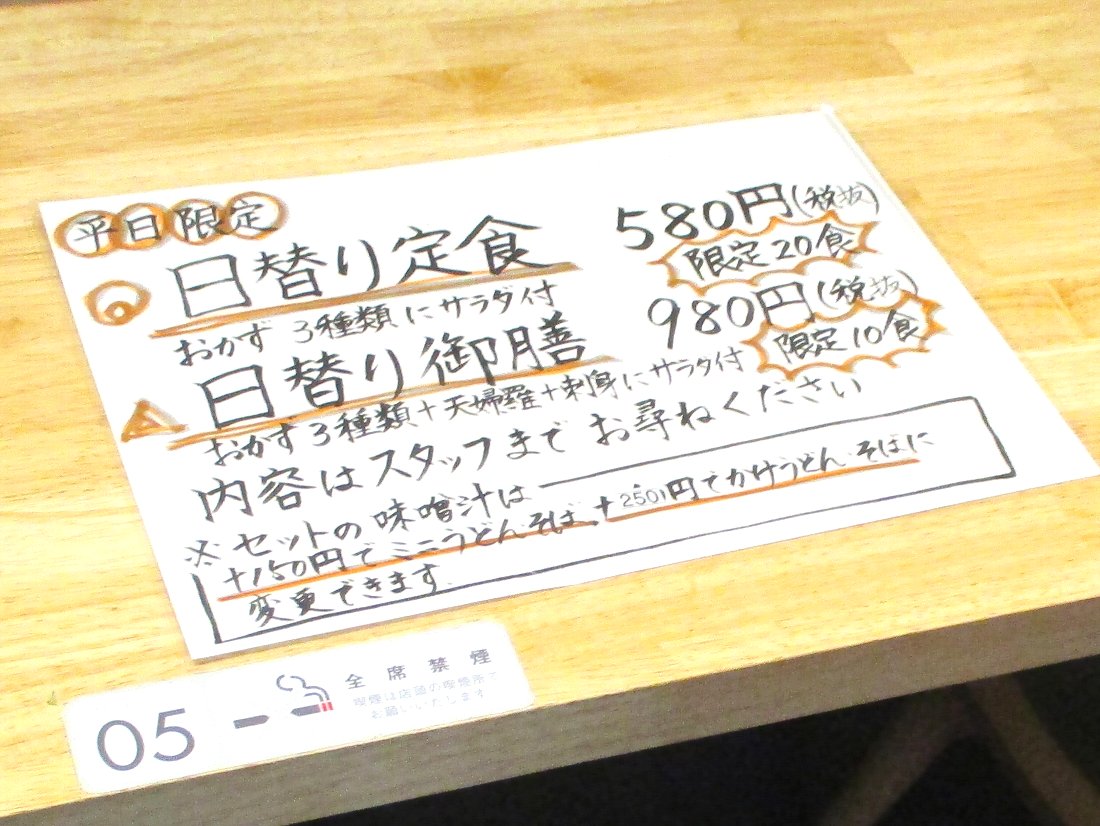 平日限定
日替り定食 580円(税抜)
おかず3種類にサラダ付 限定20食
日替り御膳 980円(税抜)
おかず3種類+天婦羅+刺身にサラダ付 限定10食
内容はスタッフまでお尋ねください
※セットの味噌汁は
+150円でミニうどん・そば、+250円でかけうどん・そばに
変更できます.
05
全席禁煙
喫煙は店頭の喫煙所で
お願いいたします